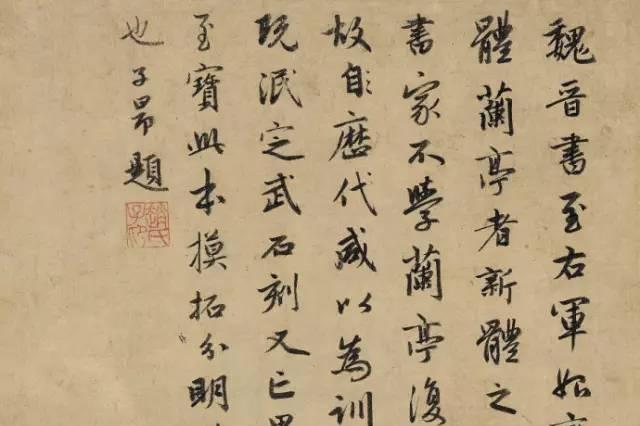 魏晉書至右軍始
體蘭亭者新體之
書家不學蘭亭復
故自歷代咸以為訓
既泯定武石刻又亡
至寶此本摸拓分明
也子昂題
趙氏子昂